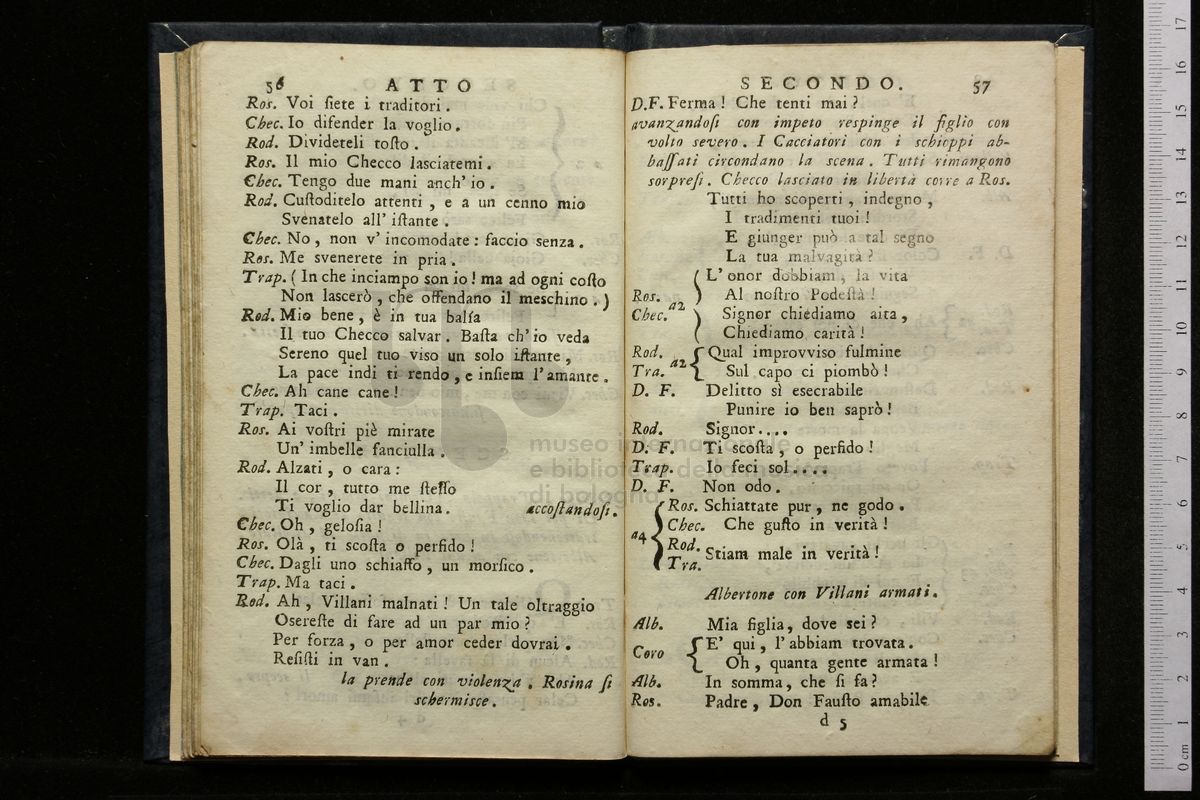 56 ATTO
Ros. Voi ſiete i traditori.
Chec. Io difender la voglio.
Rod. Divideteli toſto.
Ros. Il mio Checco laſciatemi.
Chec. Tengo due mani anch' io.
Rod. Cuſtoditelo attenti, e a un cenno mio
Svenatelo all' iſtante.
Chec. No, non v' incomodate: faccio senza.
Ros. Me svenerete in pria.
Trap. (In che inciampo son io! ma ad ogni coſto
Non lascerò, che offendano il meschino.)
Rod. Mio bene, è in tua balſa
Il tuo Checco salvar. Baſta ch' io veda
Sereno quel tuo viso un solo iſtante,
La pace indi ti rendo, e inſiem l' amante.
Chec. Ah cane cane!
Trap. Taci.
Ros. Ai voſtri piè mirate
Un' imbelle fanciulla.
Rod. Alzati, o cara:
Il cor, tutto me ſteſſo
Ti voglio dar bellina. accoſtandoſi.
Chec. Oh, geloſia!
Ros. Olà, ti scoſta o perfido!
Chec. Dagli uno schiaffo, un morſico.
Trap. Ma taci.
Rod. Ah, Villani malnati! Un tale oltraggio
Osereſte di fare ad un par mio?
Per forza, o per amor ceder dovrai.
Reſiſti in van.
la prende con violenza. Rosina ſi
schermisce.
SECONDO. 57
D.F. Ferma! Che tenti mai?
avanzandoſi con impeto respinge il figlio con
volto severo. I Cacciatori con i schioppi ab-
baſſati circondano la scena. Tutti rimangono
sorpreſi. Checco laſciato in libertà corre a Ros.
Tutti ho scoperti, indegno,
I tradimenti tuoi!
E giunger può a tal segno
La tua malvagità?
L' onor dobbiam, la vita
Ros. Al noſtro Podeſtà!
a2
Chec. Signor chiediamo aita,
Chiediamo carità!
Rod. Qual improvviso fulmine
a2
Tra. Sul capo ci piombò!
D. F. Delitto sì esecrabile
Punire io ben saprò!
Rod. Signor....
D. F. Ti scoſta, o perfido!
Trap. Io feci sol....
D. F. Non odo.
Ros. Schiattate pur, ne godo.
Chec. Che guſto in verità!
a4
Rod.
Stiam male in verità!
Tra.
Albertone con Villani armati.
Alb. Mia figlia, dove sei?
Coro E' qui, l' abbiam trovata.
Oh, quanta gente armata!
Alb. In somma, che ſi fa?
Ros. Padre, Don Fauſto amabile
d 5
museo internazionale
e biblioteca della musica
di bologna
0 cm 1 2 3 4 5 6 7 8 9 10 11 12 13 14 15 16 17